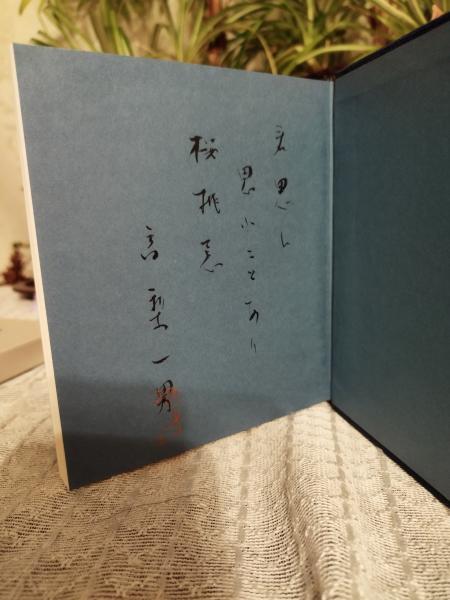 思
思ふことあり
桜桃忌
高梨一男